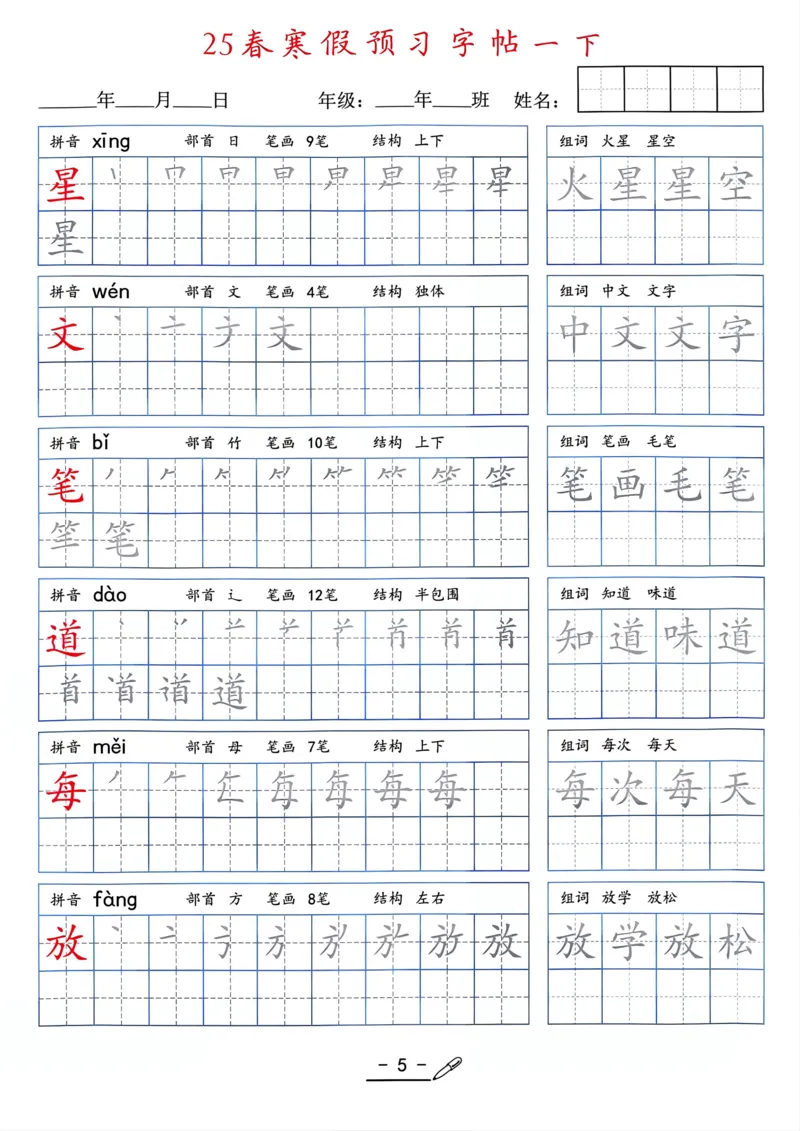 25春寒假预习字帖一下
____年____月____日 年级：____年____班 姓名：
拼音 xīng 部首 日 笔画 9笔 结构 上下
组词 火星 星空
星
火星星空
星
拼音 wén 部首 文 笔画 4笔 结构 独体
组词 中文 文字
文 文
中文文字
拼音 bǐ 部首 竹 笔画 10笔 结构 上下
组词 笔画 毛笔
笔
笔画毛笔
笔
拼音 dào 部首 辶 笔画 12笔 结构 半包围
组词 知道 味道
道 首
知道味道
首 道
拼音 měi 部首 母 笔画 7笔 结构 上下
组词 每次 每天
每 每
每次每天
拼音 fàng 部首 方 笔画 8笔 结构 左右
组词 放学 放松
放 放
放学放松
- 5 -